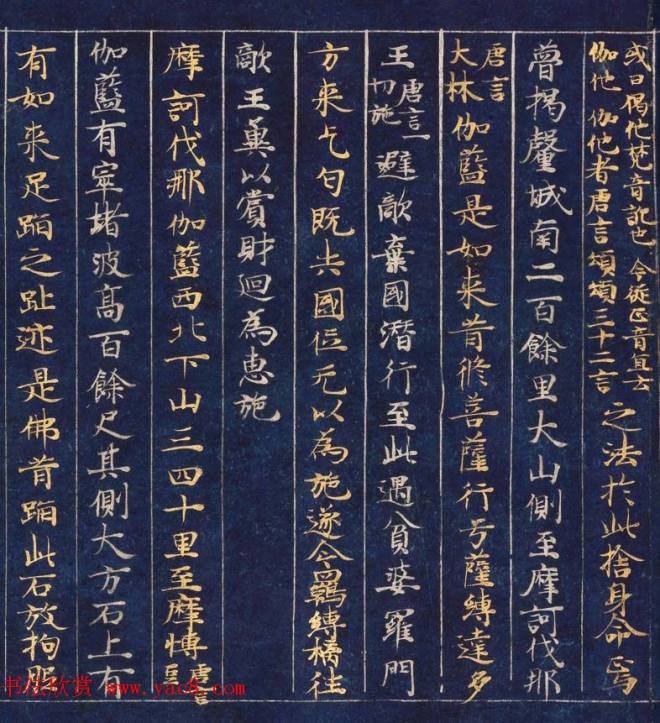 或曰偈他梵音訛也今從正音宜云
伽他伽他者唐言頌頌三十二言之法於此捨身命焉
瞢揭釐城南二百餘里大山側至摩訶伐那
唐言大林伽藍是如来昔脩菩薩行号薩縛達多
王唐言一切施避敵棄國潜行至此遇貧婆羅門
方来乞匃既失國位无以為施遂令羈縛擒往
敵王兾以賞財迴為惠施
摩訶伐那伽藍西北下山三四十里至摩愽唐言
伽藍有窣堵波高百餘尺其側大方石上有
有如来足蹈之趾迹是佛昔蹈此石放拘胝
书法欣赏 www.yac8.com